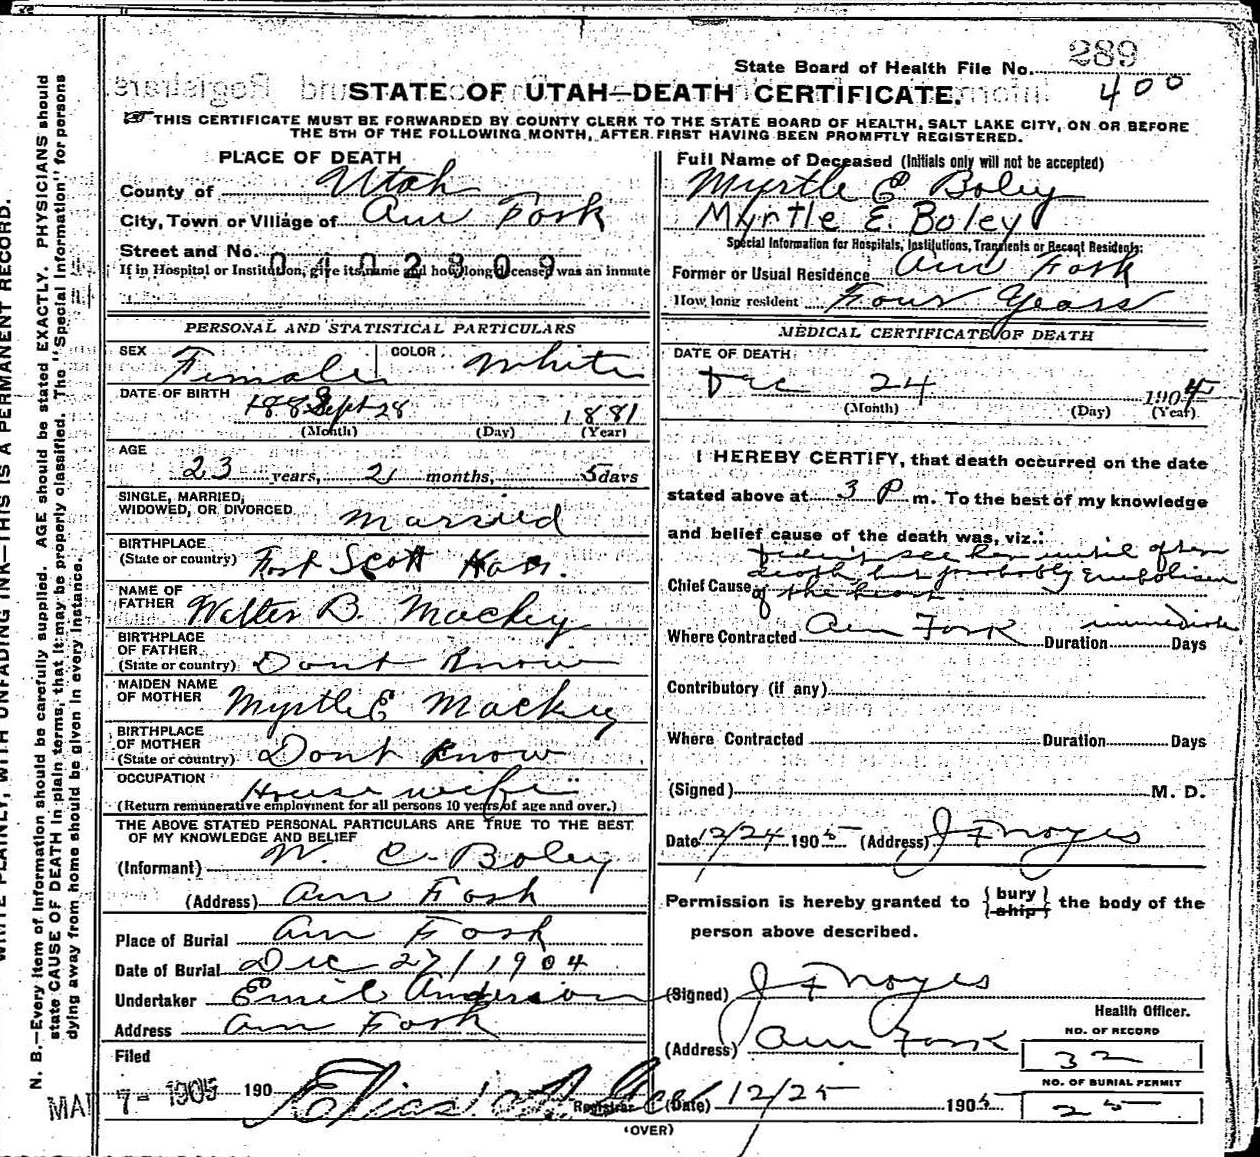 289
State Board of Health File No.
400
STATE OF UTAH—DEATH CERTIFICATE.
THIS CERTIFICATE MUST BE FORWARDED BY COUNTY CLERK TO THE STATE BOARD OF HEALTH, SALT LAKE CITY, ON OR BEFORE
THE 5TH OF THE FOLLOWING MONTH, AFTER FIRST HAVING BEEN PROMPTLY REGISTERED.
PLACE OF DEATH
County of Utah
City, Town or Village of Am Fork
Street and No.
0402809
If in Hospital or Institution, give its name and how long deceased was an inmate
PERSONAL AND STATISTICAL PARTICULARS
SEX Female COLOR White
DATE OF BIRTH Sept 28 1881
(Month) (Day) (Year)
AGE
23 years, 2 months, 5 days
SINGLE, MARRIED,
WIDOWED, OR DIVORCED Married
BIRTHPLACE
(State or country) Fort Scott Kan.
NAME OF
FATHER Walter B. Mackey
BIRTHPLACE
OF FATHER
(State or country) Dont Know
MAIDEN NAME
OF MOTHER Myrtle E Mackey
BIRTHPLACE
OF MOTHER
(State or country) Dont Know
OCCUPATION House wife
(Return remunerative employment for all persons 10 years of age and over.)
THE ABOVE STATED PERSONAL PARTICULARS ARE TRUE TO THE BEST
OF MY KNOWLEDGE AND BELIEF
(Informant) W. C. Boley
(Address) Am Fork
Place of Burial Am Fork
Date of Burial Dec 27 / 1904
Undertaker Emil Anderson
Address Am Fork
Filed
7- 1905 190
Registrar
Full Name of Deceased (Initials only will not be accepted)
Myrtle E Boley
Myrtle E. Boley
Special Information for Hospitals, Institutions, Transients or Recent Residents:
Former or Usual Residence Am Fork
How long resident Four Years
MEDICAL CERTIFICATE OF DEATH
DATE OF DEATH
Dec 24 1904
(Month) (Day) (Year)
I HEREBY CERTIFY, that death occurred on the date
stated above at 3 P m. To the best of my knowledge
and belief cause of the death was, viz.:
Didn't see her until after
Chief Cause death but probably Embolism
of the heart.
Where Contracted Am Fork Duration immediate Days
Contributory (if any)
Where Contracted Duration Days
(Signed) M. D.
Date 12/24 1905 (Address) J F Noyes
Permission is hereby granted to {bury ship} the body of the
person above described.
(Signed) J F Noyes
Health Officer.
(Address) Am Fork
NO. OF RECORD
32
NO. OF BURIAL PERMIT
25
(Date) 12/25 1905
(OVER)
N. B.—Every item of information should be carefully supplied. AGE should be stated EXACTLY. PHYSICIANS should
state CAUSE OF DEATH in plain terms, that it may be properly classified. The "Special Information" for persons
dying away from home should be given in every instance.
WRITE PLAINLY, WITH UNFADING INK—THIS IS A PERMANENT RECORD.